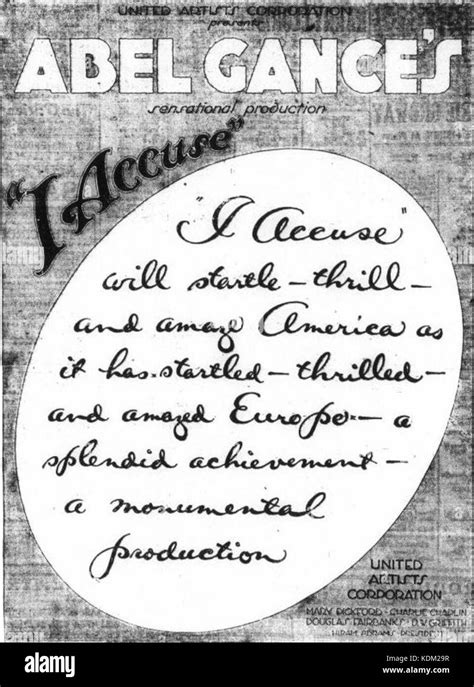 UNITED ARTISTS CORPORATION
presents
ABEL GANCE'S
sensational production
"I Accuse"
"I Accuse"
will startle – thrill –
and amaze America as
it has startled – thrilled –
and amazed Europe – a
splendid achievement –
a monumental
production
UNITED
ARTISTS
CORPORATION
MARY PICKFORD · CHARLIE CHAPLIN
DOUGLAS FAIRBANKS · D.W. GRIFFITH
HIRAM ABRAMS · PRESIDENT
alamy
Image ID: KDM29R
www.alamy.com